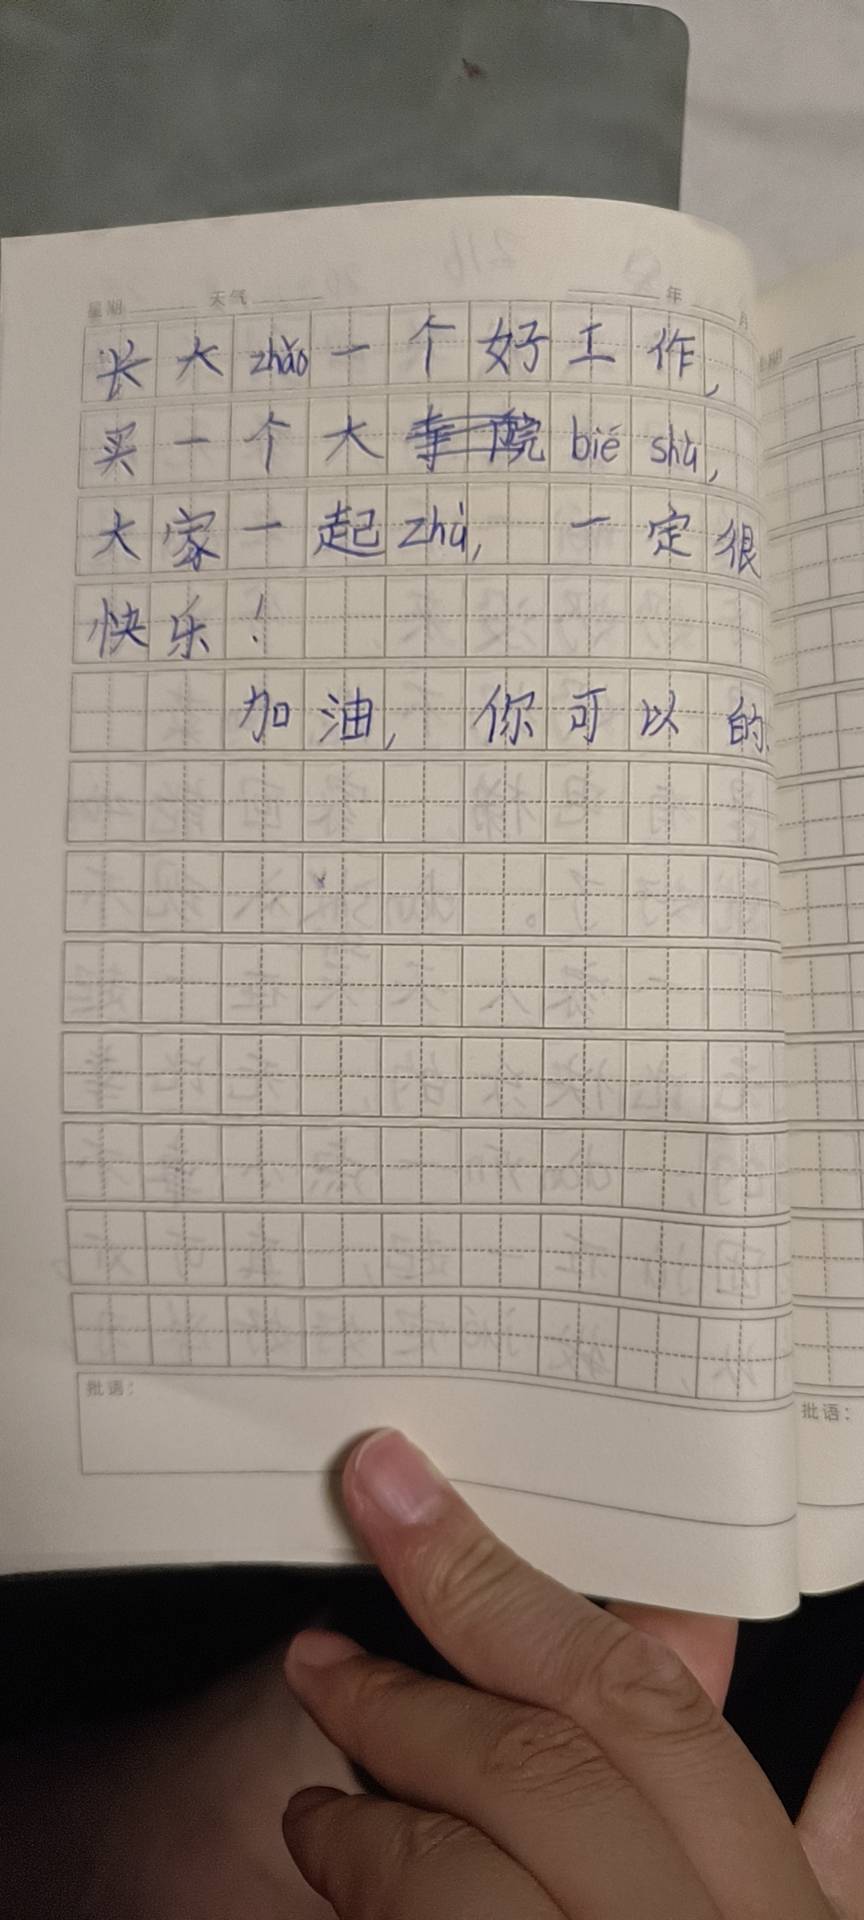 星期 天气 年 月
长大zhǎo一个好工作,
买一个大 bié shù,
大家一起zhù, 一定很
快乐!
加油, 你可以的.
批语:
批语: